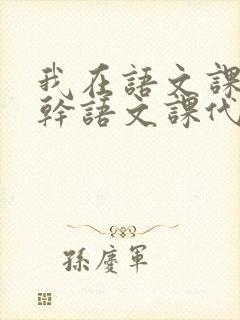 我在語文課
幹語文課代
孫慶軍